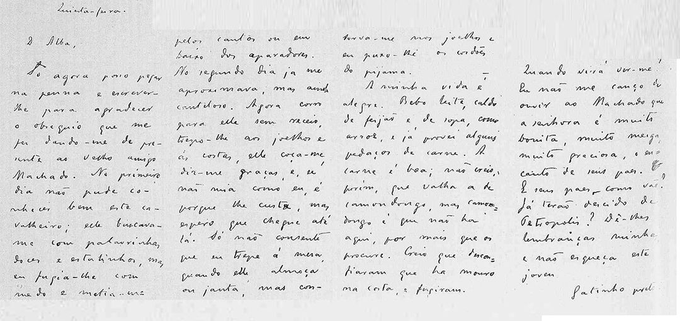 Quinta-feira.
D. Alba,
Só agora posso pegar
na penna e escrever-
lhe para agradecer
o obsequio que me
fez dando-me de pre-
sente ao velho amigo
Machado. No primeiro
dia não pude co-
nhecer bem este ca-
valheiro; elle buscava-
me com palavrinhas
doces e estalinhos, mas
eu fugia-lhe com
medo e mettia-me
pelos cantos ou em-
baixo dos aparadores.
No segundo dia já me
aproximava, mas ainda
cauteloso. Agora corro
para elle sem receio,
trepo-lhe aos joelhos e
ás costas, elle coça-me,
diz-me graças, e, se
não mia como eu, é
porque lhe custa, mas
espero que chegue até
lá. Só não consente
que eu trepe á mesa,
quando elle almoça
ou janta, mas con-
serva-me nos joelhos e
eu puxo-lhe os cordões
do pijama.
A minha vida é
alegre. Bebo leite, caldo
de feijão e de sopa, como
arroz, e já provei alguns
pedaços de carne. A
carne é boa; não creio,
porém, que valha a de
camondongo, mas camon-
dongo é que não ha
aqui, por mais que os
procure. Creio que descon-
fiaram que ha mouro
na costa, e fugiram.
Quando virá ver-me?
Eu não me canço de
ouvir ao Machado que
a senhora é muito
bonita, muito meiga,
muito graciosa, o en-
canto de seus paes.
E seus paes, como vão?
Já terão descido de
Petropolis? Dê-lhes
lembranças minhas
e não esqueça este
joven
Gatinho preto